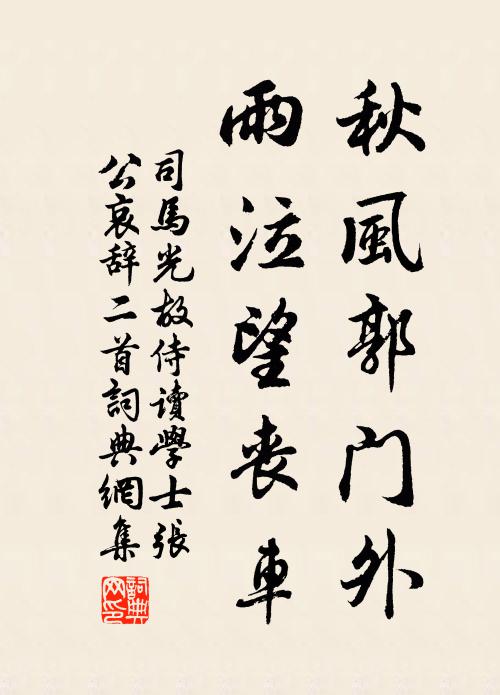 秋風郭门外
雨泣望丧車
司馬光故侍讀學士張
公哀辞二首詞典網集
詞典网印